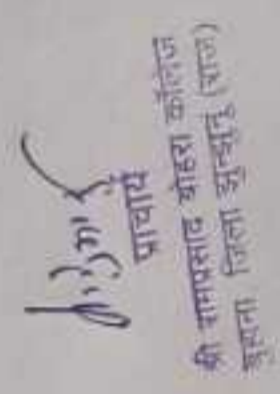 प्राचार्य
श्री रामप्रसाद बोहरा कॉलेज
जिला झुन्झुनूं (राज)